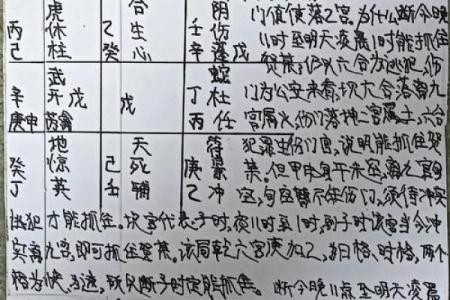 虎 合 阴 门值使落乙宫,为什么断今晚
丙休 生 壬伤 11时至明天凌晨1时能抓住
己柱 乙癸心 辛蓬戊 贺某,仍以六合为逃犯,伤
武 蛇 门为公安来看,坎六合落离九
辛开戊 戊 丁杜 宫属火,伤门落坤二宫属土,六合
庚申芮禽 丙任 犯罪生伤门宫,说明能抓住贺
地 天 符 某,但甲申旬午未空,离九宫旬
癸惊 己死 庚景 空,旬空暂不伤门,须待冲实
丁英 壬辅 乙冲
逃犯才能抓住。坎宫代表子时,夜11时至1时,到子时该宫当令冲
实离九宫,即可抓住贺某。该局乾六宫庚加乙,为日格、时格,两个
格为快、迅速,所以断子时定能抓住。 断今晚11点至明天凌晨